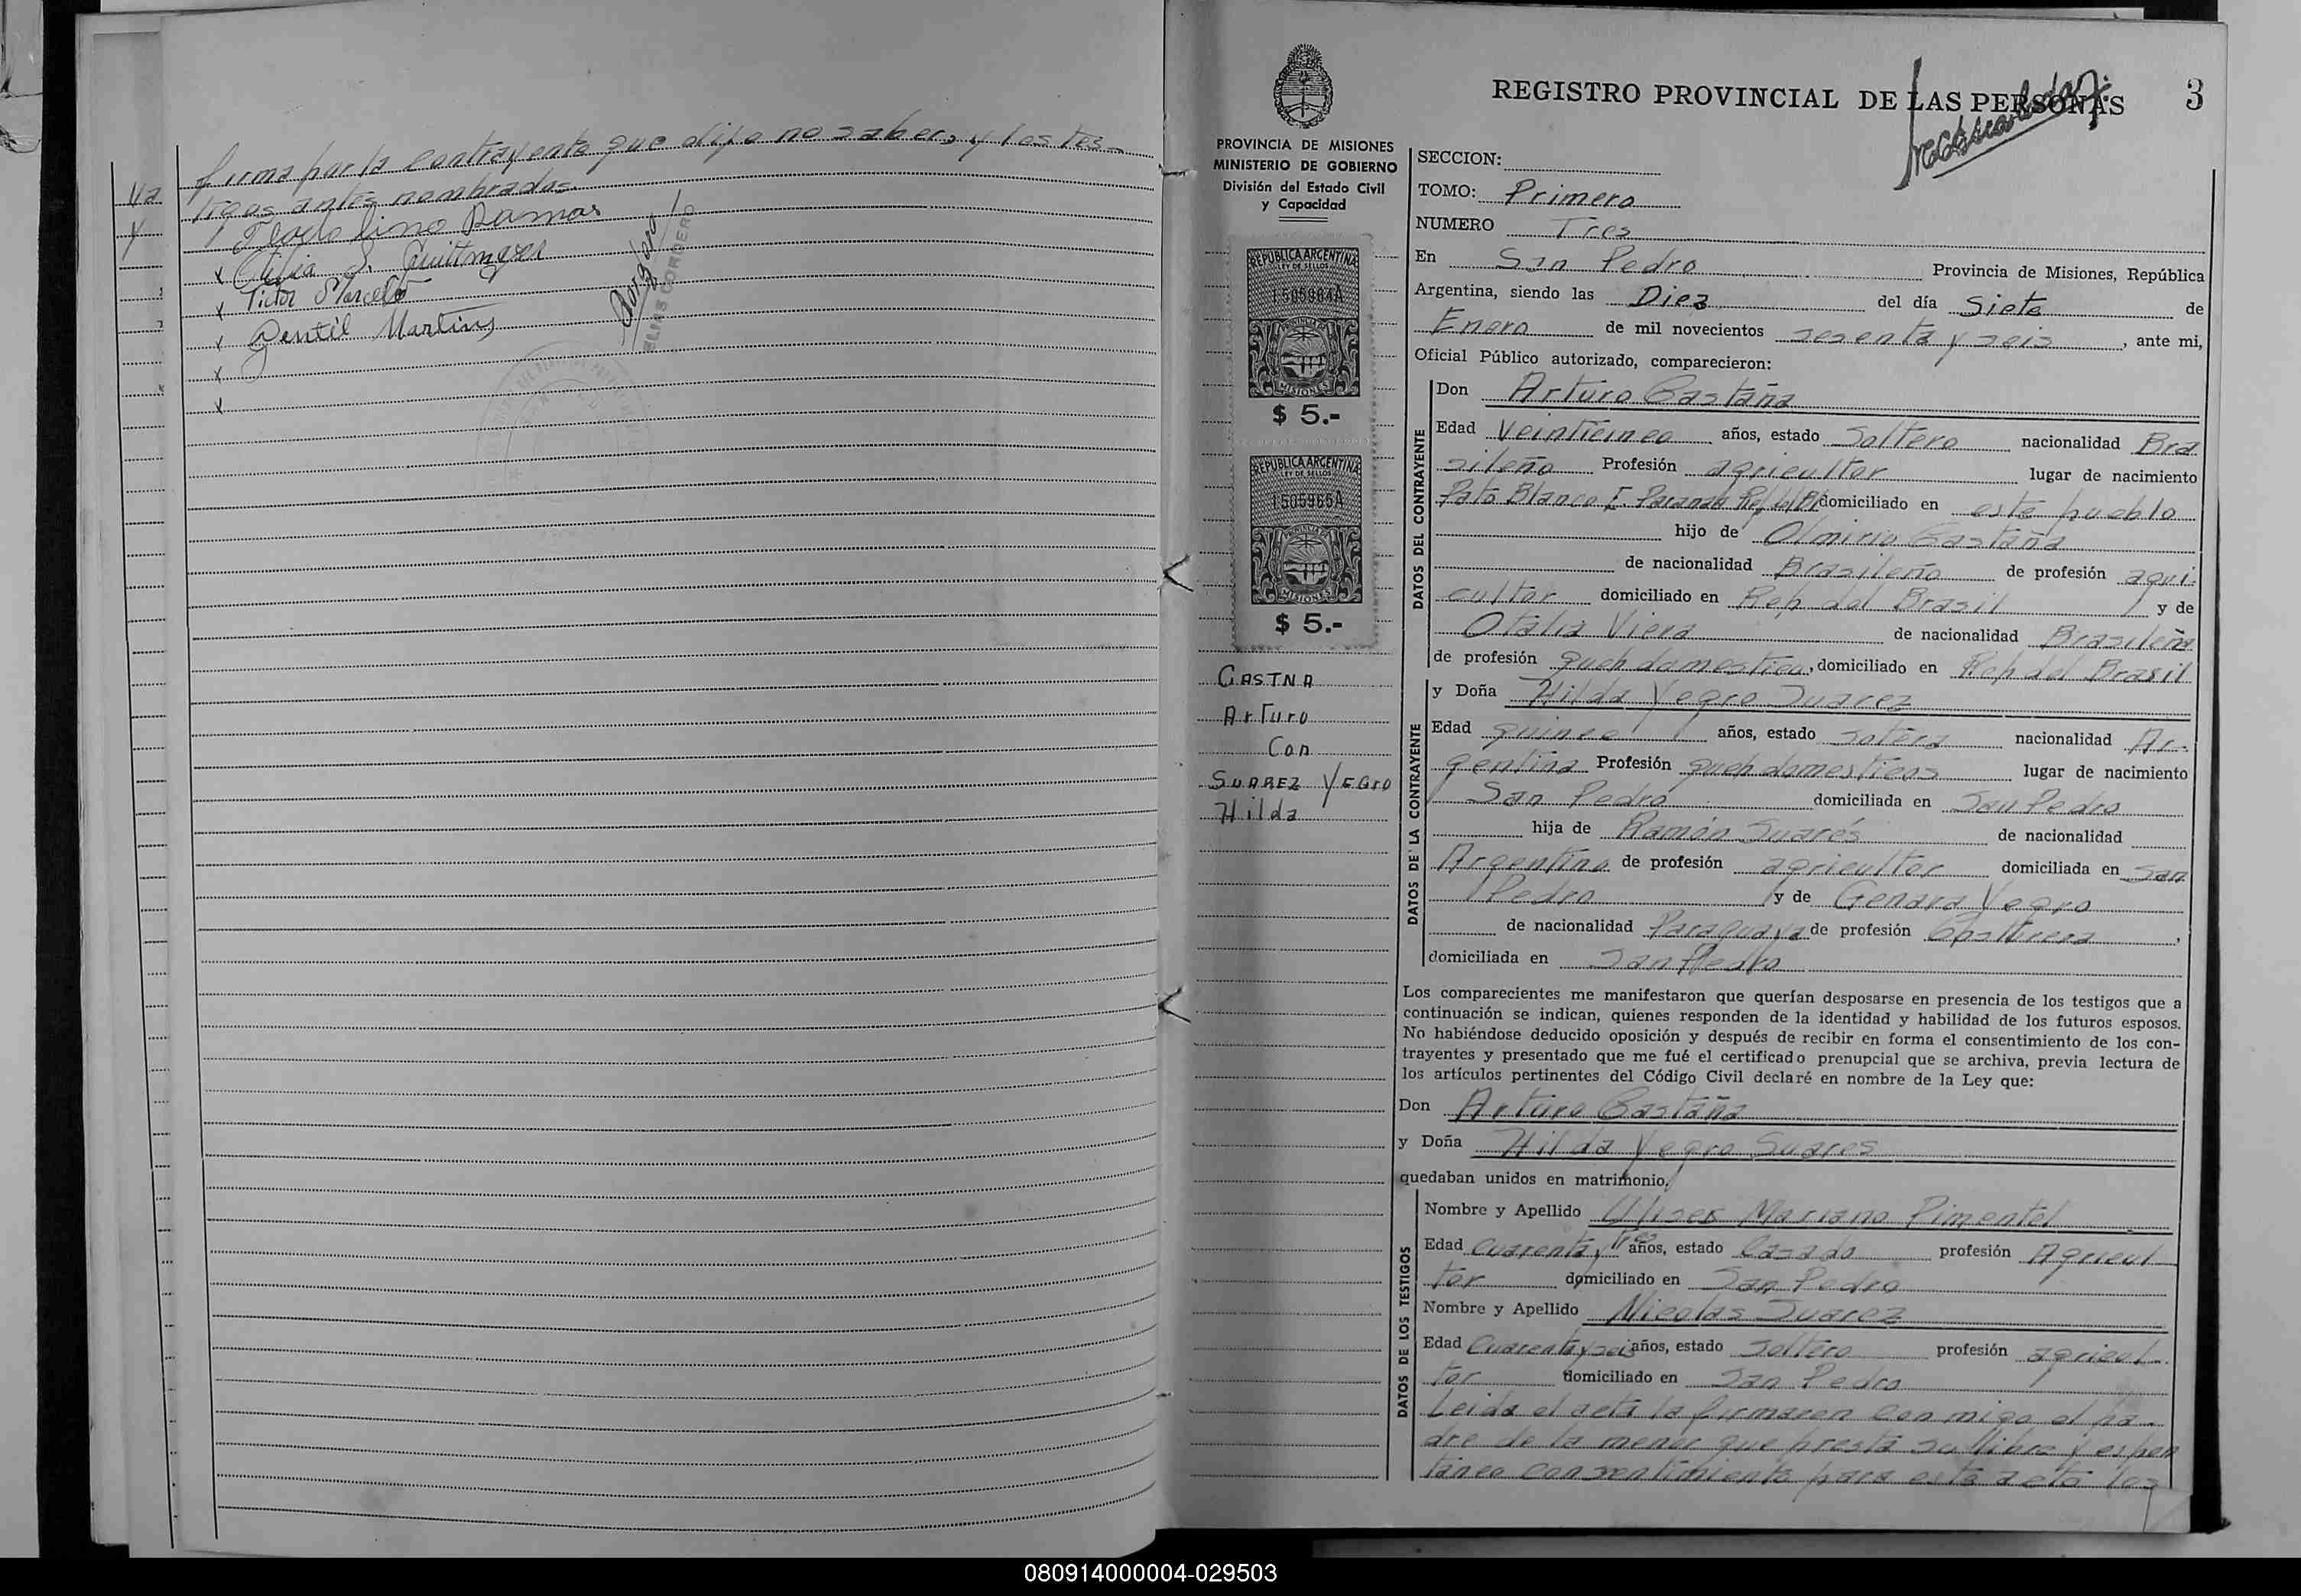 firma por la contrayente que dijo no saber, y los tes-
tigos antes nombrados.
Teodolino Ramos
Victor Marcelo
Gentil Martins
ELIAS CORDERO
REGISTRO PROVINCIAL DE LAS PERSONAS
3
PROVINCIA DE MISIONES
MINISTERIO DE GOBIERNO
División del Estado Civil
y Capacidad
REPUBLICA ARGENTINA
LEY DE SELLOS
1505964A
MISIONES
$ 5.-
REPUBLICA ARGENTINA
LEY DE SELLOS
1505965A
MISIONES
$ 5.-
GASTNA
Arturo
Con
SUAREZ YEGRO
Hilda
SECCION:
TOMO: Primero
NUMERO Tres
En San Pedro Provincia de Misiones, República
Argentina, siendo las Diez del día Siete de
Enero de mil novecientos sesenta y seis, ante mi,
Oficial Público autorizado, comparecieron:
DATOS DEL CONTRAYENTE
Don Arturo Gastaña
Edad Veinticinco años, estado Soltero nacionalidad Bra
sileño Profesión agricultor lugar de nacimiento
Pato Blanco domiciliado en este pueblo
hijo de Olmirio Gastaña
de nacionalidad Brasileño de profesión agri-
cultor domiciliado en Rep del Brasil y de
Otalia Viera de nacionalidad Brasileña
de profesión queh domestico, domiciliado en Rep del Brasil
DATOS DE LA CONTRAYENTE
y Doña Hilda Yegro Suarez
Edad quince años, estado soltera nacionalidad Ar-
gentina Profesión queh domesticos lugar de nacimiento
San Pedro domiciliada en San Pedro
hija de Ramón Suarés de nacionalidad
Argentino de profesión agricultor domiciliada en San
Pedro y de Genara Yegro
de nacionalidad Paraguaya de profesión Costurera,
domiciliada en San Pedro
Los comparecientes me manifestaron que querían desposarse en presencia de los testigos que a
continuación se indican, quienes responden de la identidad y habilidad de los futuros esposos.
No habiéndose deducido oposición y después de recibir en forma el consentimiento de los con-
trayentes y presentado que me fué el certificado prenupcial que se archiva, previa lectura de
los artículos pertinentes del Código Civil declaré en nombre de la Ley que:
Don Arturo Gastaña
y Doña Hilda Yegro Suares
quedaban unidos en matrimonio.
DATOS DE LOS TESTIGOS
Nombre y Apellido Ulises Mariano Pimentel
Edad Cuarenta y tres años, estado Casado profesión Agricul
tor domiciliado en San Pedro
Nombre y Apellido Nicolas Suarez
Edad Cuarenta y seis años, estado soltero profesión agricul-
tor domiciliado en San Pedro
Leida el acta la firmaron con migo el pa-
dre de la menor que presta su libre y espon
táneo consentimiento para este acto los
080914000004-029503